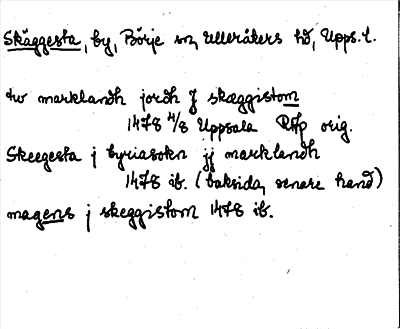 Skäggesta, by, Börje sn, Ulleråkers hd, Upps. l.
tw marklandh jordh j skæggistom
1478 4/8 Uppsala RAp orig.
Skeegesta j byriasokn jj marklandh
1478 ib. (baksida, senare hand)
magens j skeggistom 1478 ib.